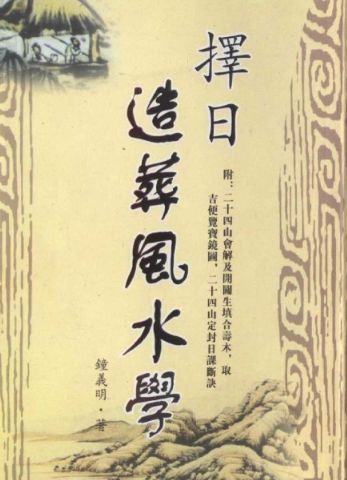 擇日
造葬風水學
附：二十四山會解及開圖生填合壽木，取
吉便覽寶鏡圖，二十四山定封日課斷訣
鐘義明．著